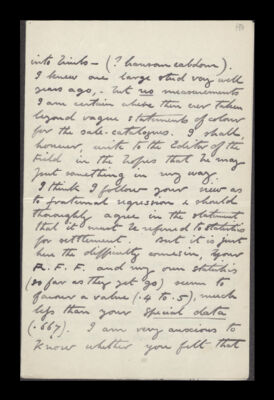 into Links – (? transcendatour).
I knew one large stud very well
years ago, – but no measurements
I am certain above there ever taken
beyond vague statements of colour
for the sale-catalogues. I shall,
however, write to the Editor of the
Field in the hopes that he may
put something in my way.
I think I follow your view as
to fraternal regression & should
thoroughly agree in the statement
that it must be referred to statistics
for settlement. But it is just
here the difficulty comes in, your
R.F.F. and my own statistics
(so far as they get go) seem to
favour a value (.4 to .5), much
less than your special data
(.667). I am very anxious to
know whether you felt that